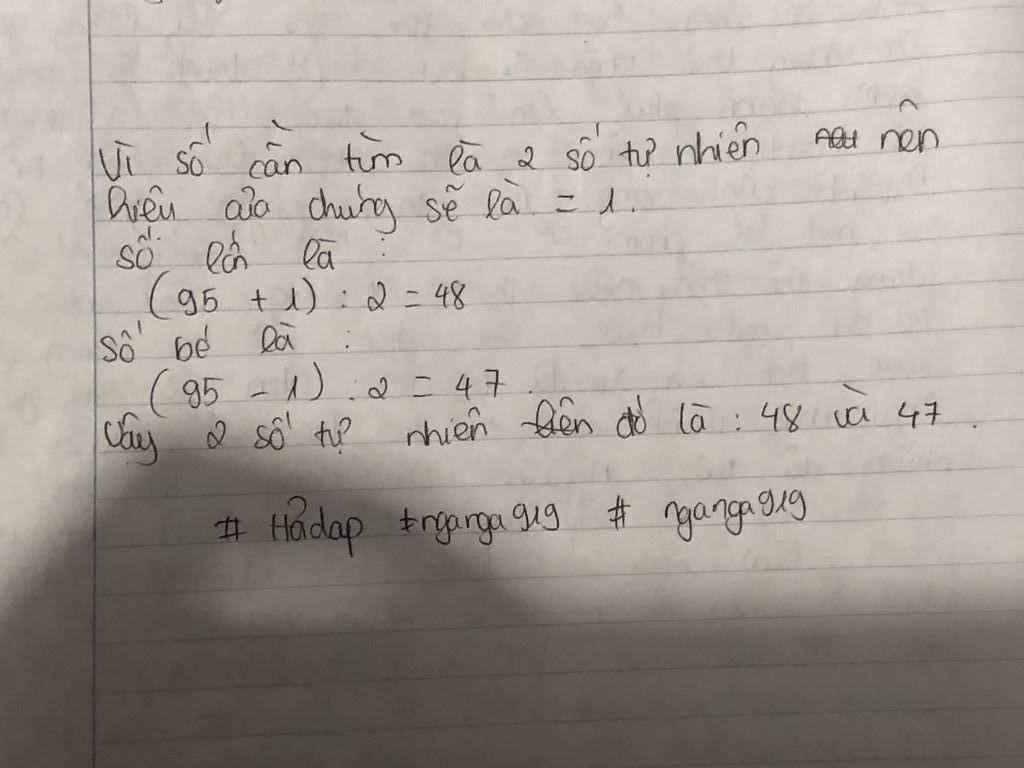 Vì số cần tìm là 2 số tự nhiên nên
hiệu của chúng sẽ là = 1.
số lớn là :
(95 + 1) : 2 = 48
Số bé là :
(95 - 1) : 2 = 47.
Vậy 2 số tự nhiên đó là : 48 và 47.
# Hỏidap #nganga919 # nganga919